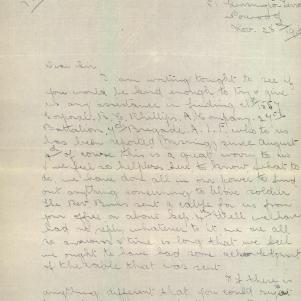 Norwood
Nov. 23rd
Dear Sir
I am writing tonight to see if
you would be kind enough to try & give
us any assistance in finding
Corporal R. C. Phillips, A Company, 27th
Battalion, 7th Brigade, A.I.F. who to us
has been reported (missing) since August
of course this is a great worry to us
& we feel so helpless not to know what to
do we have done all in our power to find
out anything concerning the above soldier
The Rev Burns sent a cable for us from
your office on about Sep. Well we have
had no reply whatever to it we are all
so anxious & time is long that we feel
we ought to have had some acknowledgement
of the cable that was sent
If there is
anything different that you could suggest